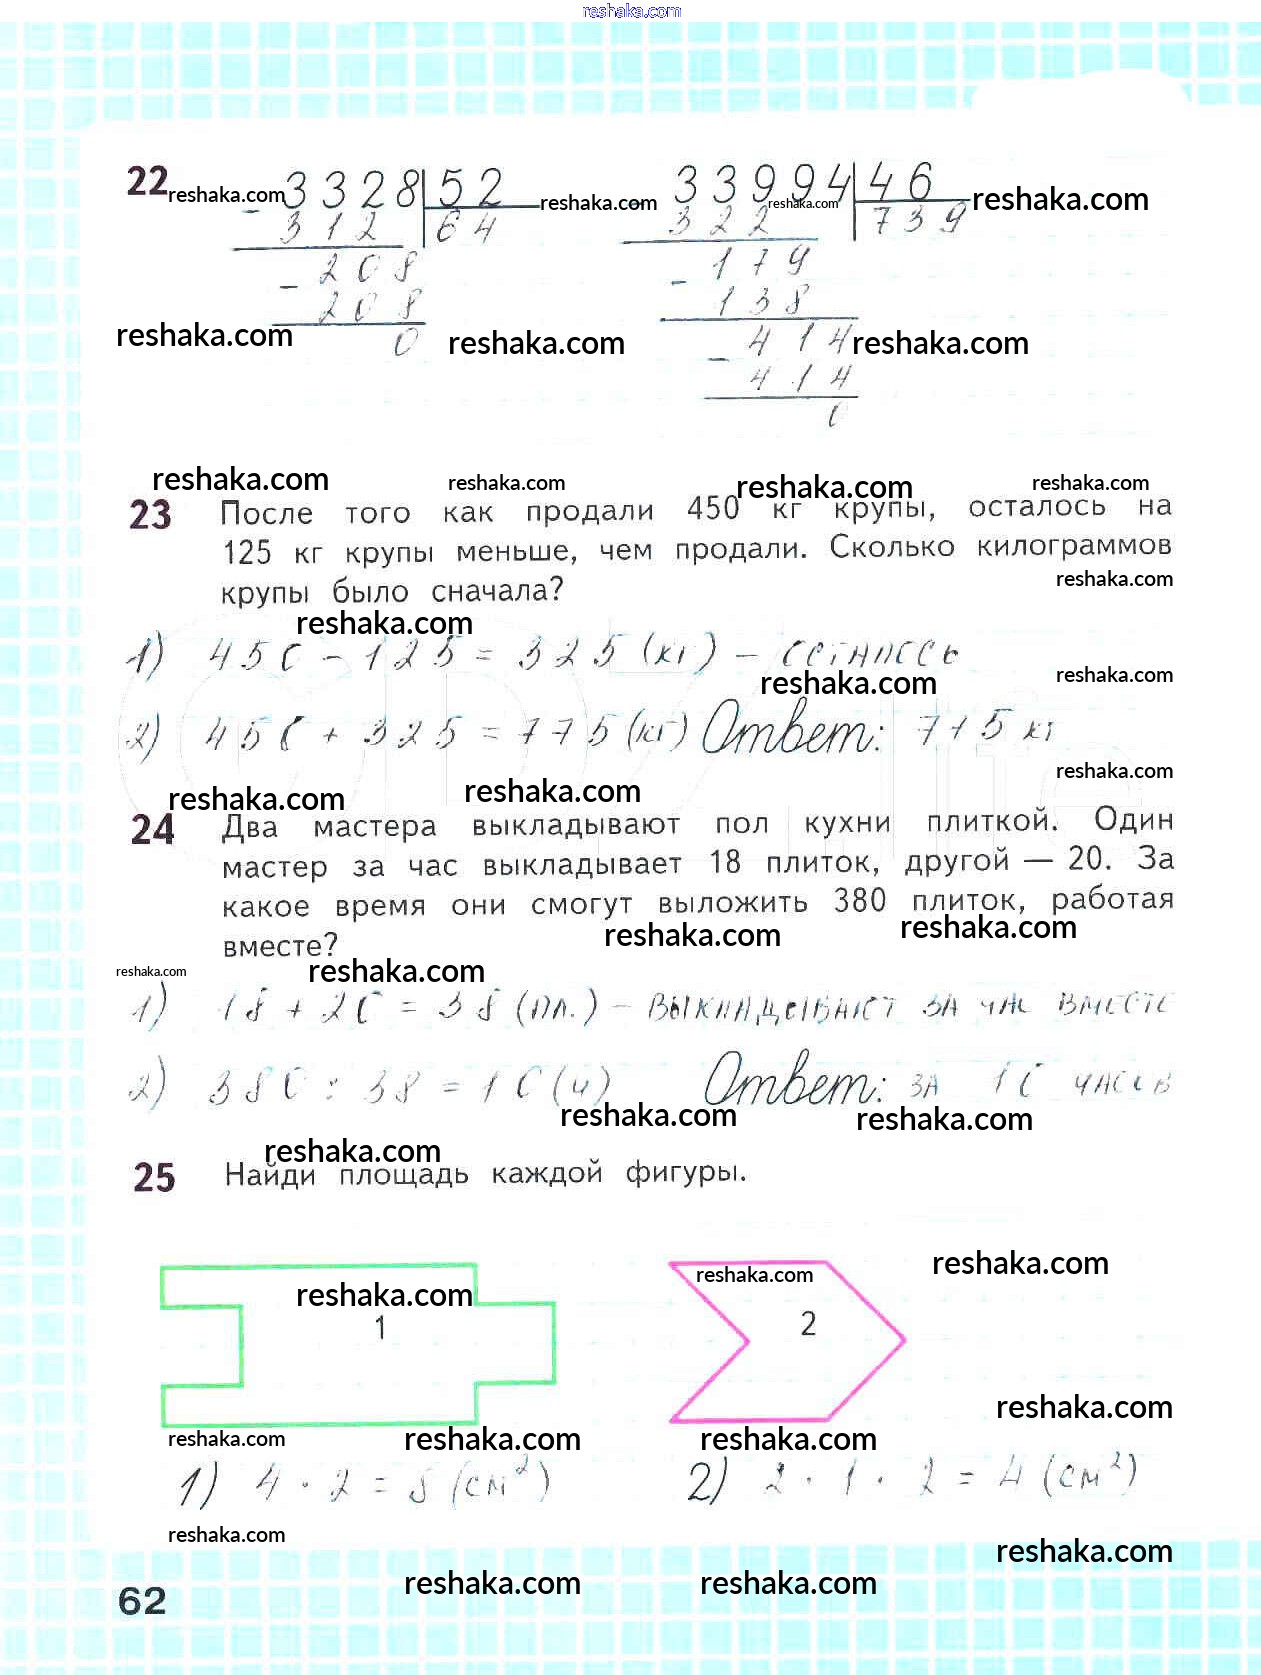 reshaka.com
22 reshaka.com 3328 52 reshaka.com 33994 46 reshaka.com
- 312 64 - 322 reshaka.com 739
208 179
- 208 - 138
reshaka.com 0 reshaka.com 414 reshaka.com
- 414
0
reshaka.com reshaka.com reshaka.com reshaka.com
23 После того как продали 450 кг крупы, осталось на
125 кг крупы меньше, чем продали. Сколько килограммов
reshaka.com
крупы было сначала?
reshaka.com
1) 450 - 125 = 325 (кг) - осталось
reshaka.com reshaka.com
2) 450 + 325 = 775 (кг) Ответ: 775 кг
reshaka.com reshaka.com reshaka.com
24 Два мастера выкладывают пол кухни плиткой. Один
мастер за час выкладывает 18 плиток, другой — 20. За
какое время они смогут выложить 380 плиток, работая
reshaka.com reshaka.com
вместе?
reshaka.com reshaka.com
1) 18 + 20 = 38 (пл.) - выкладывают за час вместе
2) 380 : 38 = 10 (ч) Ответ: за 10 часов
reshaka.com reshaka.com
reshaka.com
25 Найди площадь каждой фигуры.
reshaka.com
reshaka.com reshaka.com
1 2
reshaka.com
reshaka.com reshaka.com reshaka.com
1) 4 · 2 = 8 (см²) 2) 2 · 1 · 2 = 4 (см²)
reshaka.com reshaka.com
reshaka.com reshaka.com
62